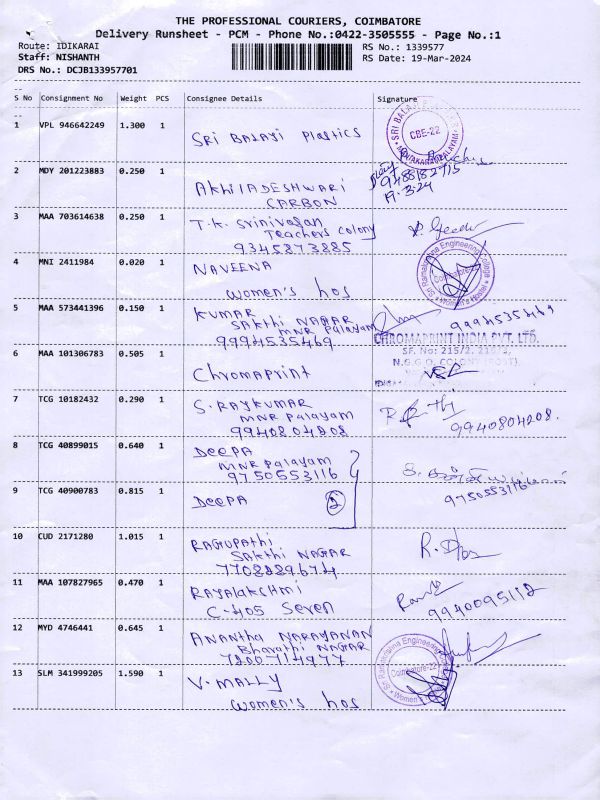 THE PROFESSIONAL COURIERS, COIMBATORE
Delivery Runsheet - PCM - Phone No.:0422-3505555 - Page No.:1
Route: IDIKARAI
RS No.: 1339577
Staff: NISHANTH
RS Date: 19-Mar-2024
DRS No.: DCJB133957701
S No Consignment No Weight PCS Consignee Details Signature
1 VPL 946642249 1.300 1 SRI BALAJI Plastics
CBE-22
2 MDY 201223883 0.250 1 AKHILADESHWARI
CARBON
9488182715
19.3.24
3 MAA 703614638 0.250 1 T.K. Srinivasan
Teachers colony
9345873885
4 MNI 2411984 0.020 1 NAVEENA
women's hos
Sri Ramakrishna Engineering College
Coimbatore-22
Women's Hostel
5 MAA 573441396 0.150 1 KUMAR
SAKTHI NAGAR
MNR Palayam
9994535469
9994535469
6 MAA 101306783 0.505 1 Chromaprint
CHROMAPRINT INDIA PVT. LTD.
SF. No: 215/2,
N.G.G.O. COLONY (POST),
7 TCG 10182432 0.290 1 S. RAJKUMAR
MNR Palayam
9940804808
9940804208.
8 TCG 40899015 0.640 1 DEEPA
MNR Palayam
9750553116
9750553116
9 TCG 40900783 0.815 1 DEEPA 2
10 CUD 2171280 1.015 1 RAGUPATHI
SAKTHI NAGAR
7708889674
11 MAA 107827965 0.470 1 RAJALAKSHMI
C-405 Seven
9940095112
12 MYD 4746441 0.645 1 ANANTHA NARAYANAN
Bharathi NAGAR
7200714977
13 SLM 341999205 1.590 1 V. MALLY
women's hos
Sri Ramakrishna Engineering
Coimbatore-22
Women's